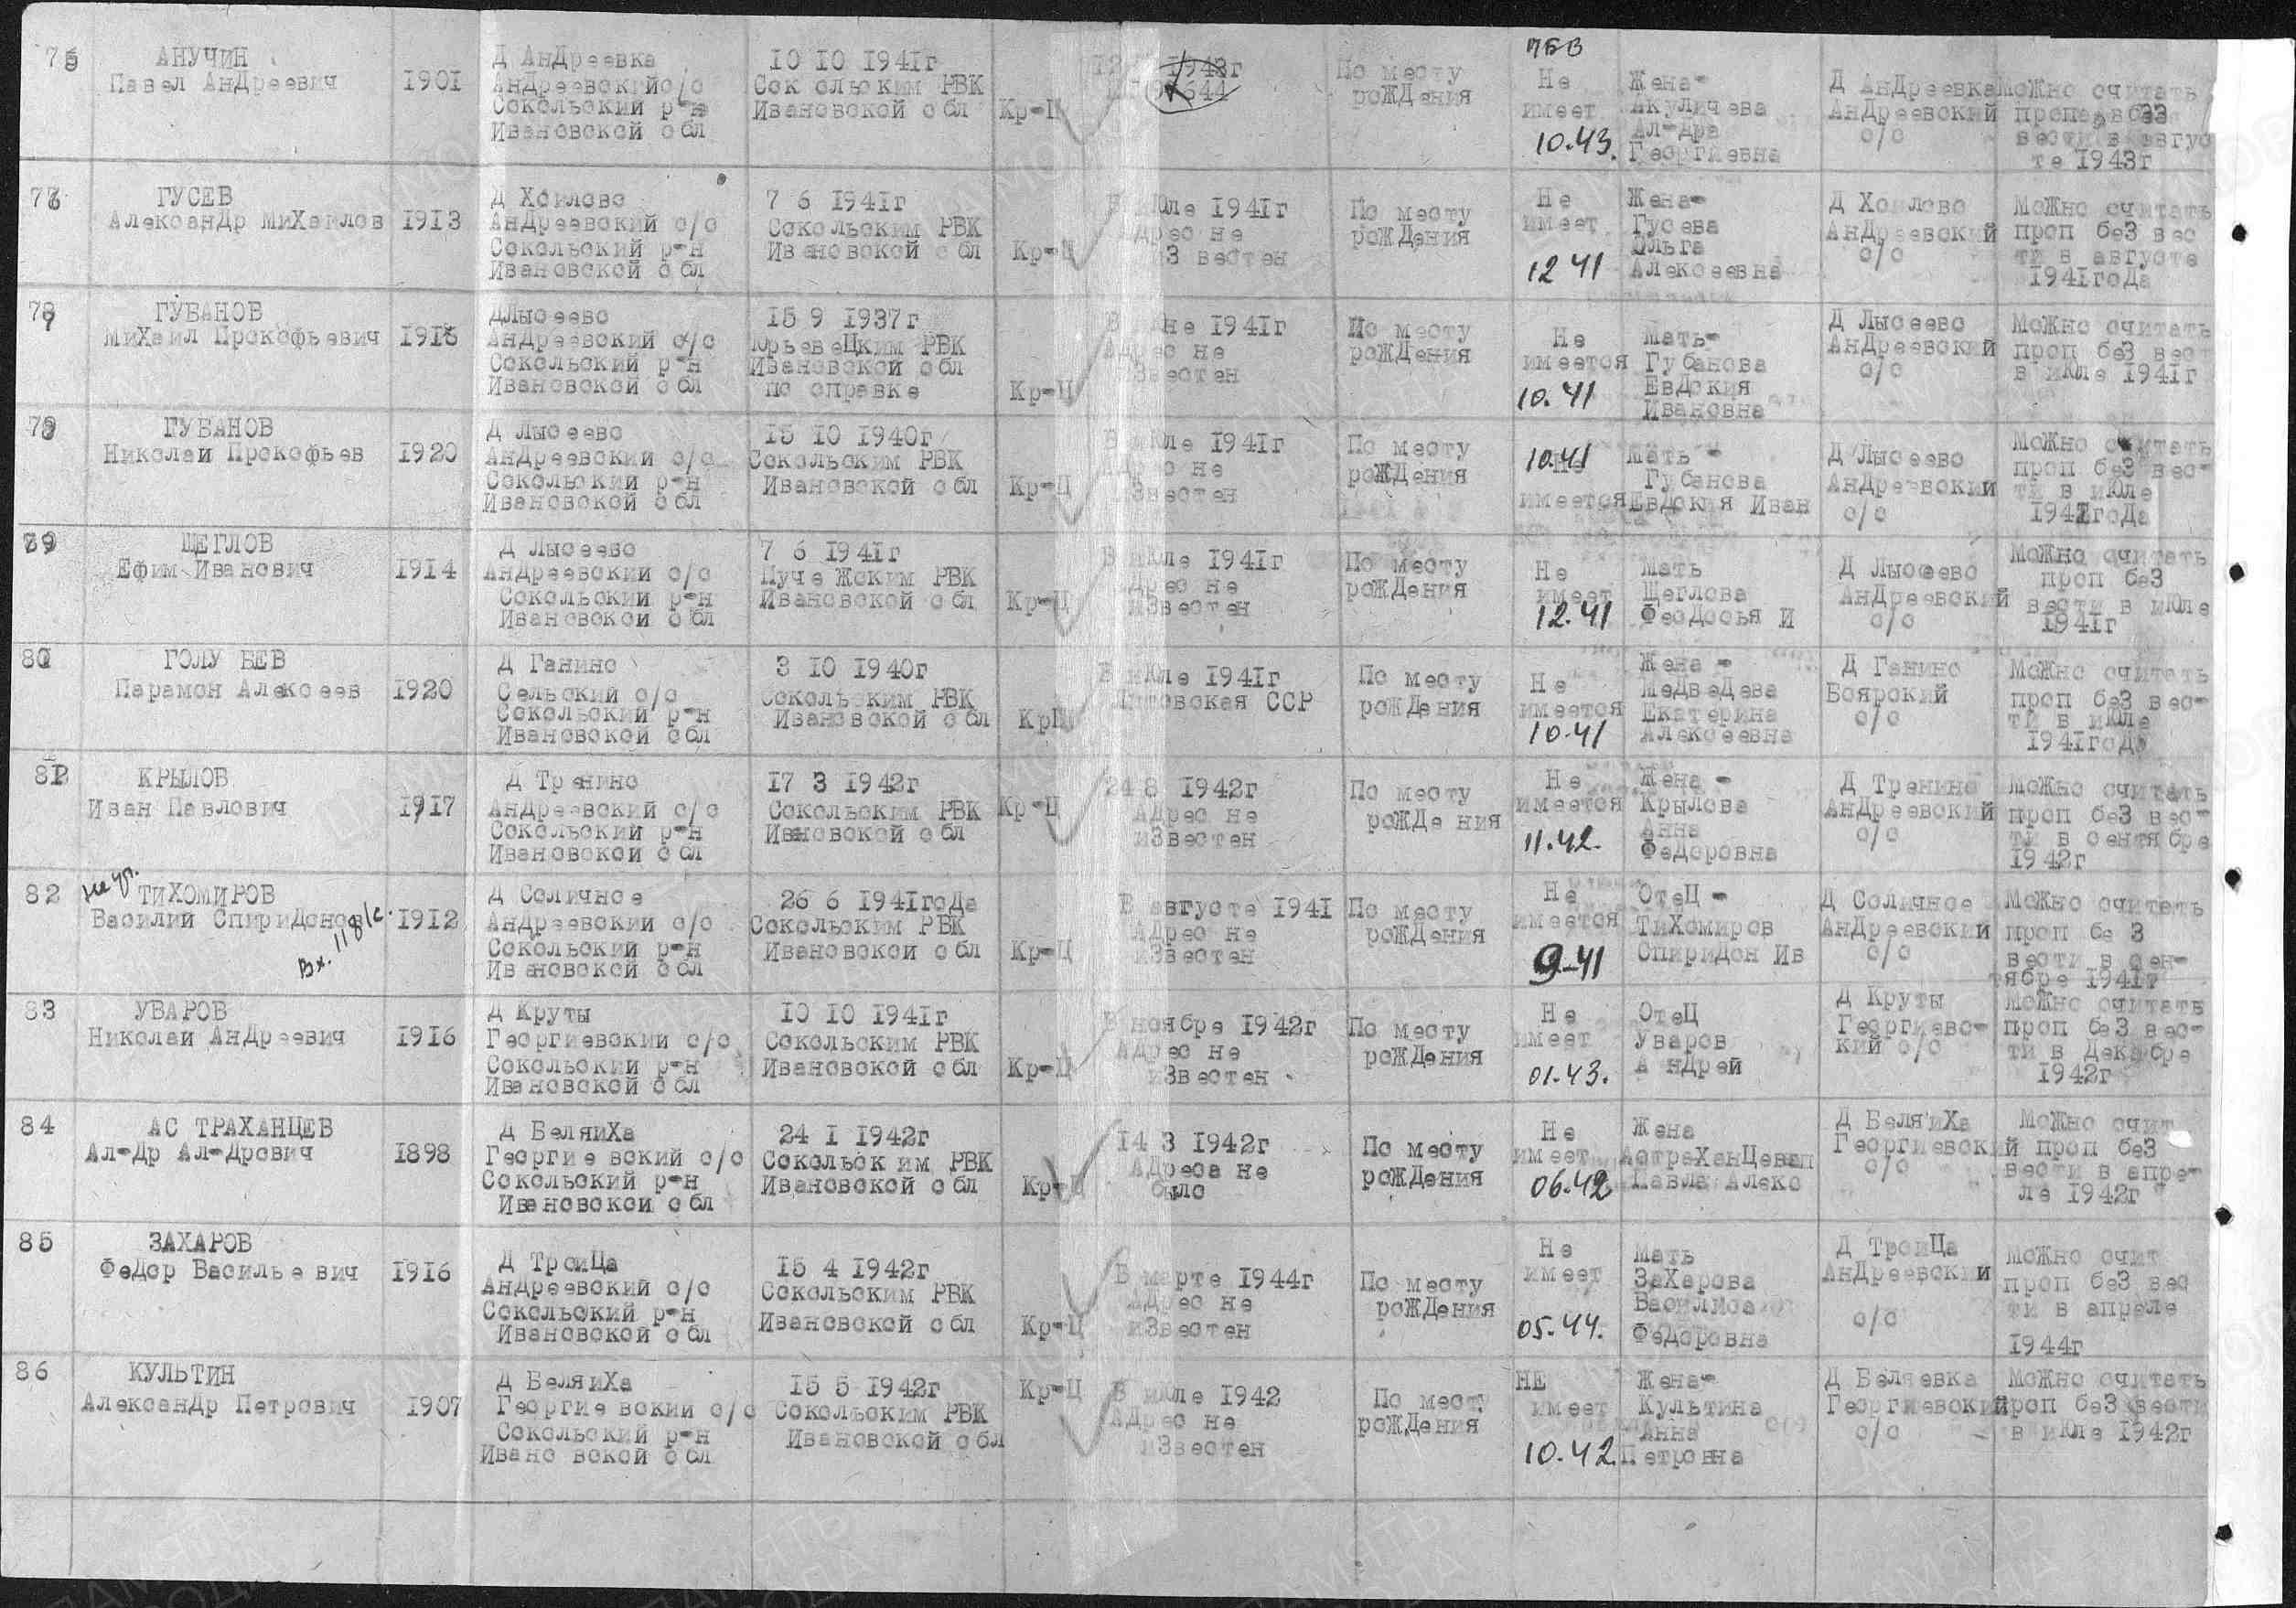 75
АНУЧИН
Павел АнДреевич
1901
Д АнДреевка
АнДреевский с/с
Сокольский р-н
Ивановской обл
10 10 1941г
Сокольским РВК
Ивановской обл
Кр-Ц
1943г
По месту
рожДения
ПБВ
Не
имеет
10.43.
Жена-
Акуличева
Ал-дра
Георгиевна
Д АнДреевка
АнДреевский
с/с
МоЖно считать
вести в авгус
те 1943г
ГУСЕВ
АлександР МиХаилов
1913
Д Хоилово
АнДреевский с/с
Сокольский р-н
Ивановской обл
7 6 1941г
Сокольским РВК
Ивановской обл
Кр-Ц
июле 1941г
Адрес не
вестен
По месту
рожДения
Не
имеет
12 41
Жена-
Гусева
Ольга
Алексеевна
Д Хоилово
АнДреевский
с/с
МоЖно считать
проп беЗ вес
ти в августе
1941гоДа
ГУБАНОВ
МиХаил Прокофьевич
Д Лысеево
АнДреевский с/с
Сокольский р-н
Ивановской обл
15 9 1937г
ЮрьевеЦким РВК
Ивановской обл
по справке
Кр-Ц
1941г
Адрес не
Звестен
По месту
рожДения
Не
имеется
10.41
Мать-
Губанова
ЕвДокия
Ивановна
Д Лысеево
АнДреевский
с/с
МоЖно считать
проп беЗ вест
в иЮле 1941г
ГУБАНОВ
Николаи Прокофьев
1920
Д Лысеево
АнДреевский с/с
Сокольский р-н
Ивановской обл
15 10 1940г
Сокольским РВК
Ивановской обл
Кр-Ц
июле 1941г
не
Звестен
По месту
рожДения
10.41
Не
имеется
Мать -
Губанова
ЕвДокия Иван
Д Лысеево
АнДреевский
с/с
МоЖно считать
проп беЗ вес-
ти в иЮле
1941гоДа
79
ЩЕГЛОВ
Ефим Иванович
1914
Д Лысеево
АнДреевский с/с
Сокольский р-н
Ивановской обл
7 6 1941г
ПучеЖским РВК
Ивановской обл
Кр-Ц
В июле 1941г
Адрес не
иЗвестен
По месту
рожДения
Не
имеет
12.41
Мать
Щеглова
ФеоДосья И
Д Лысеево
АнДреевский
с/с
МоЖно считать
проп беЗ
вести в иЮле
1941г
80
ГОЛУБЕВ
Парамон Алексеев
1920
Д Ганино
Сельский с/с
Сокольский р-н
Ивановской обл
3 10 1940г
Сокольским РВК
Ивановской обл
КрЦ
В июле 1941г
Литовская ССР
По месту
рожДения
Не
имеется
10.41
Жена -
МеДвеДева
Екатерина
Алексеевна
Д Ганино
Боярский
с/с
МоЖно считать
проп беЗ вес-
ти в иЮле
1941гоДа
81
КРЫЛОВ
Иван Павлович
1917
Д Тренино
АнДреевский с/с
Сокольский р-н
Ивановской обл
17 3 1942г
Сокольским РВК
Ивановской обл
Кр-Ц
24 8 1942г
АДрес не
иЗвестен
По месту
рожДения
Не
имеется
11.42.
Жена -
Крылова
Анна
ФеДоровна
Д Тренино
АнДреевский
с/с
МоЖно считать
проп беЗ вес-
ти в сентябре
1942г
82
ТИХОМИРОВ
Василий СпириДонов
Вх. 118/с.
1912
Д Соличное
АнДреевский с/с
Сокольский р-н
Ивановской обл
26 6 1941гоДа
Сокольским РВК
Ивановской обл
Кр-Ц
В августе 1941
АДрес не
иЗвестен
По месту
рожДения
Не
имеется
9-41
ОтеЦ -
ТиХомиров
СпириДон Ив
Д Соличное
АнДреевский
с/с
МоЖно считать
проп беЗ
вести в сен-
тябре 1941г
83
УВАРОВ
Николаи АнДреевич
1916
Д Круты
Георгиевский с/с
Сокольский р-н
Ивановской обл
10 10 1941г
Сокольским РВК
Ивановской обл
Кр-Ц
В ноябре 1942г
АДрес не
иЗвестен
По месту
рожДения
Не
имеет
01.43.
ОтеЦ
Уваров
АнДрей
Д Круты
Георгиевс-
кий с/с
МоЖно считать
проп беЗ вес-
ти в Декабре
1942г
84
АСТРАХАНЦЕВ
Ал-Др Ал-Дрович
1898
Д БеляиХа
Георгиевский с/с
Сокольский р-н
Ивановской обл
24 I 1942г
Сокольским РВК
Ивановской обл
Кр-Ц
14 3 1942г
АДреса не
было
По месту
рожДения
Не
имеет
06.42
Жена
Павла Алекс
Д БеляиХа
Георгиевский
с/с
МоЖно счит
проп беЗ
вести в апре-
ле 1942г
85
ЗАХАРОВ
ФеДор Васильевич
1916
Д ТроиЦа
АнДреевский с/с
Сокольский р-н
Ивановской обл
15 4 1942г
Сокольским РВК
Ивановской обл
Кр-Ц
В марте 1944г
АДрес не
иЗвестен
По месту
рожДения
Не
имеет
05.44.
Мать
ЗаХарова
Василиса
ФеДоровна
Д ТроиЦа
АнДреевский
с/с
МоЖно счит
проп беЗ вес
ти в апреле
1944г
86
КУЛЬТИН
АлександР Петрович
1907
Д БеляиХа
Георгиевский с/с
Сокольский р-н
Ивановской обл
15 5 1942г
Сокольским РВК
Ивановской обл
Кр-Ц
В июле 1942
АДрес не
иЗвестен
По мест
рожДения
НЕ
имеет
10.42
Жена-
Культина
Анна
Петровна
Д Беляевка
Георгиевский
с/с
МоЖно считать
проп беЗ вести
в иЮле 1942г